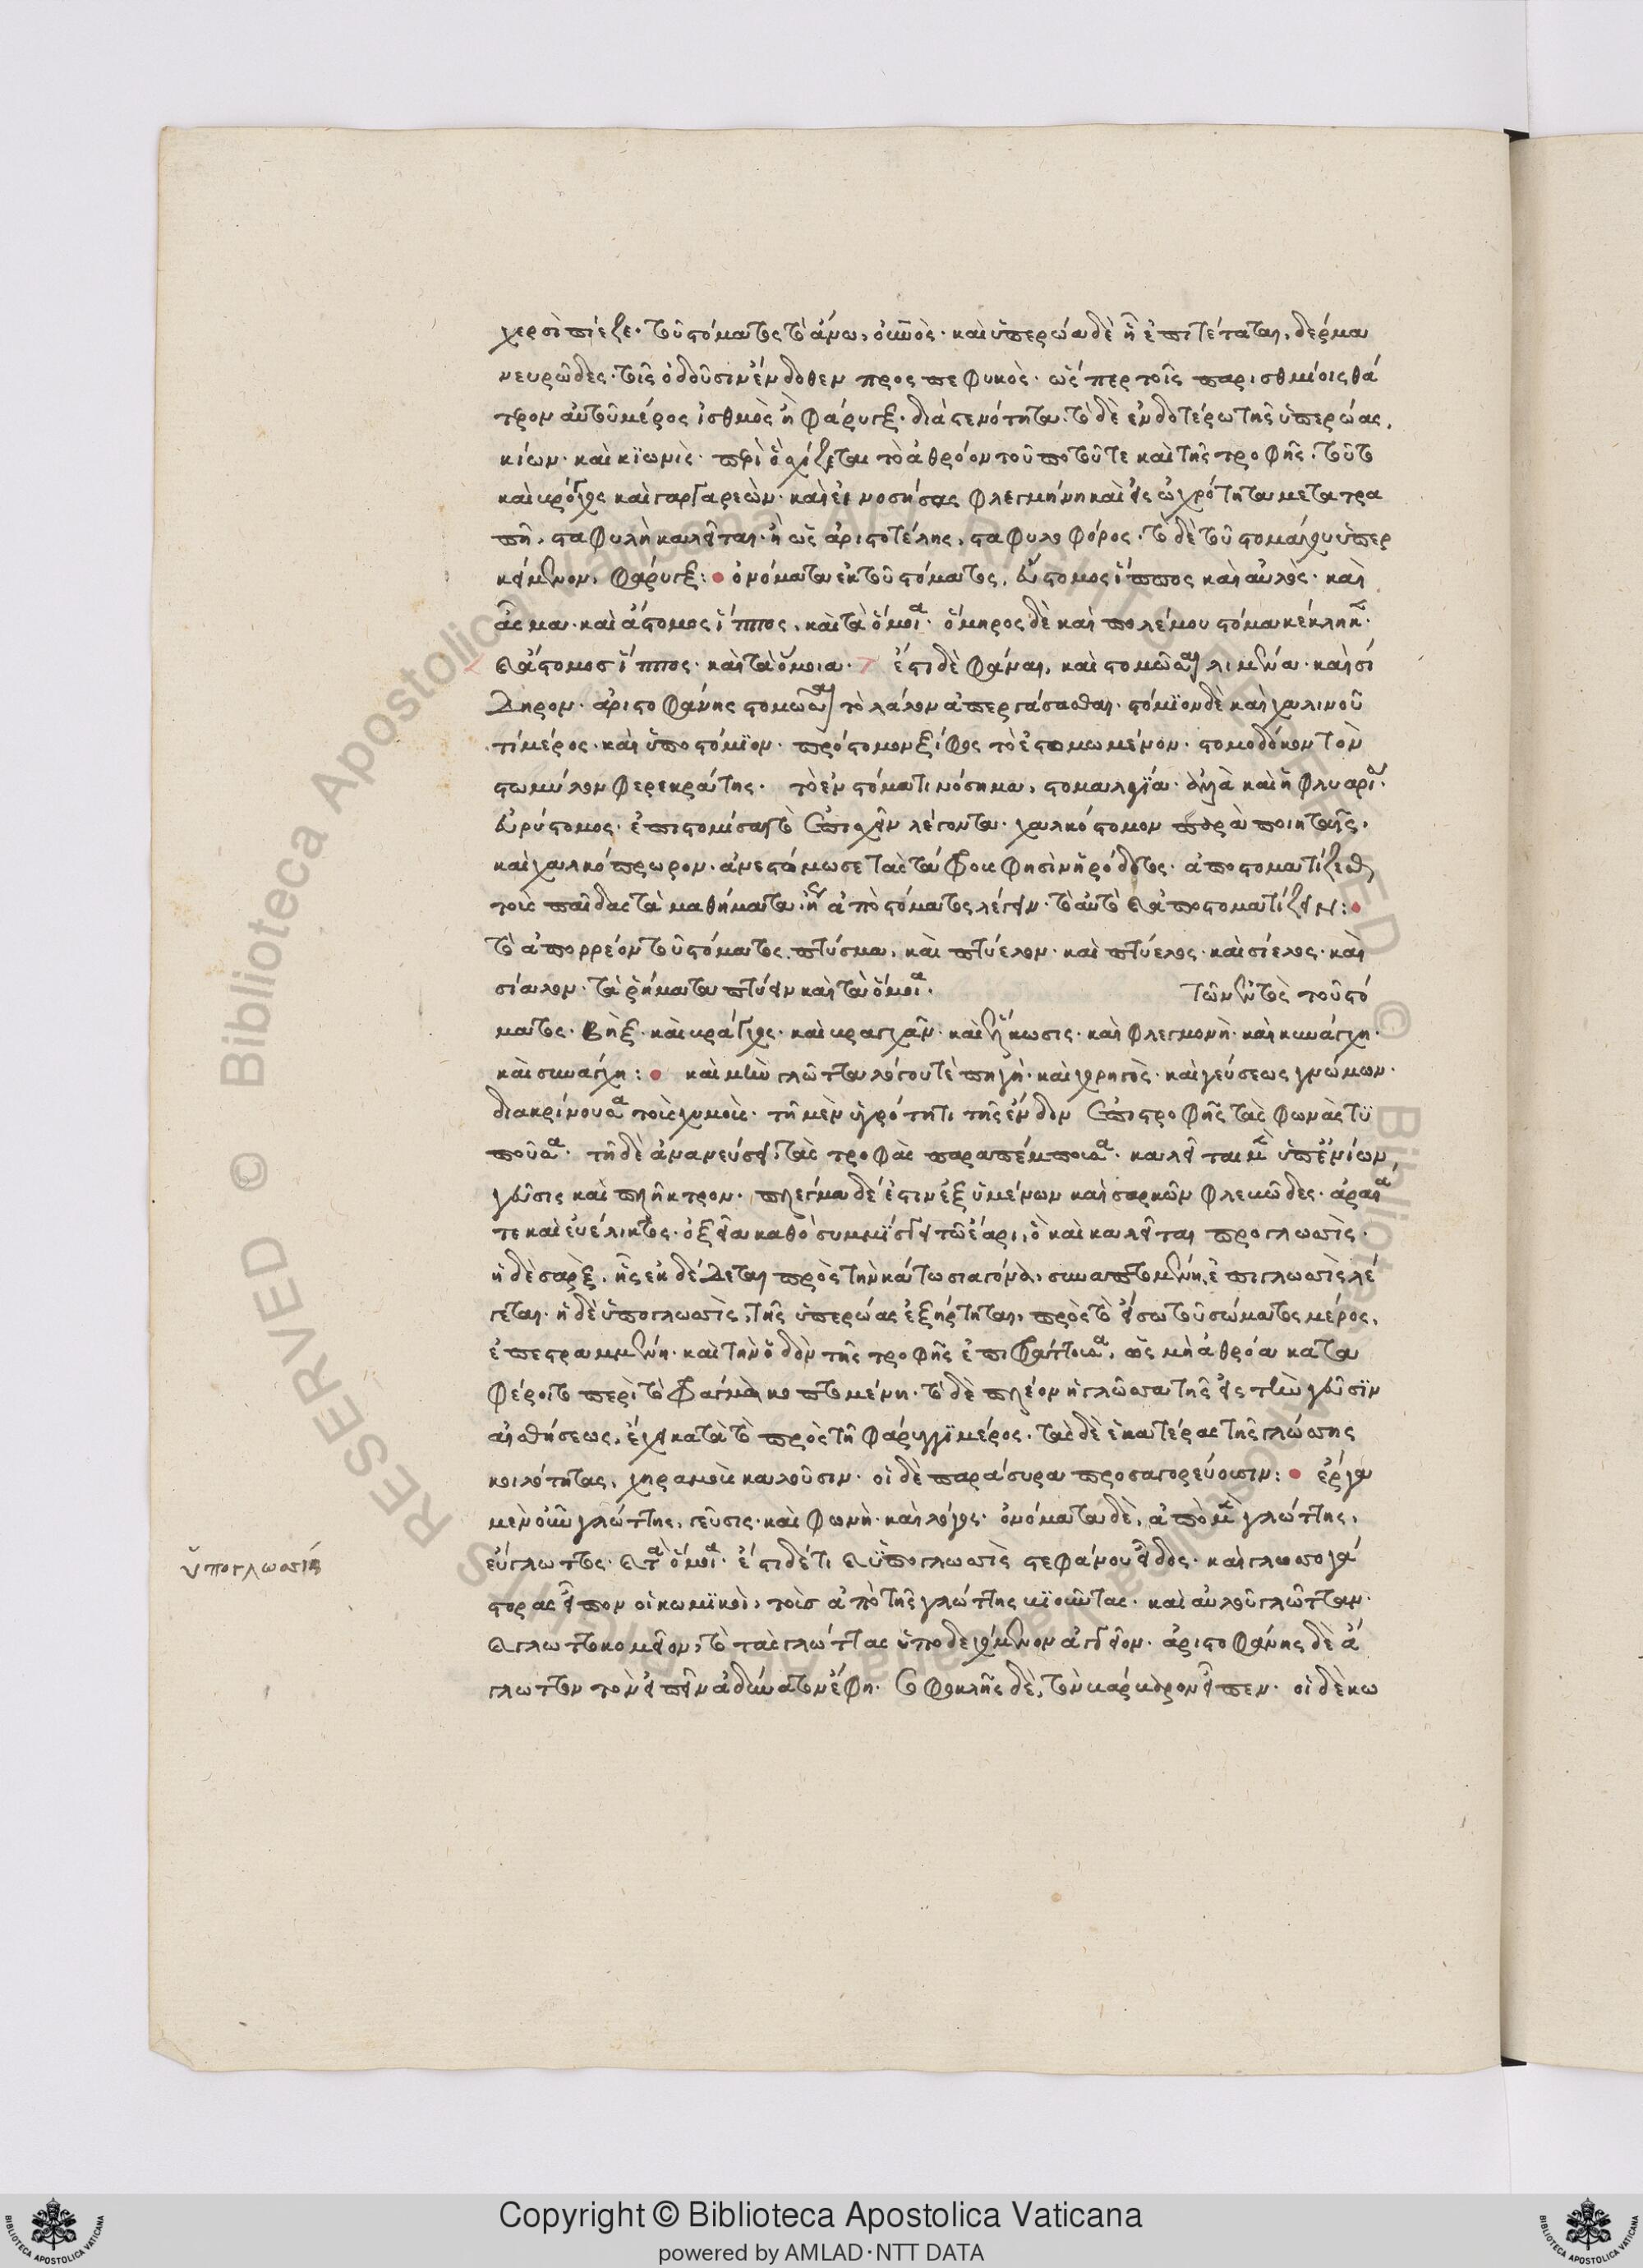 χερσὶ πίεζε· τοῦ στόματος τὸ ἄνω, οὐρανὸς· καὶ ὑπερώα δὲ ἣ ἐπιτέταται, δέρμα
νευρῶδες· τοῖς ὀδοῦσιν ἔνδοθεν προσπεφυκὸς· ὥσπερ τοῖς παρισθμίοις θά
τρον αὐτοῦ μέρος ἰσθμὸς ἢ φάρυγξ· διὰ στενότητα· τὸ δὲ ἐνδοτέρω τῆς ὑπερώας,
κίων· καὶ κϊωνὶς· περὶ ὃ σχίζεται τὸ ἀθρόον τοῦ ποτοῦ τε καὶ τῆς τροφῆς· τοῦτο
καὶ βρόγχος καὶ γαργαρεὼν· καὶ εἰ νοσήσας φλεγμήνη καὶ εἰς ὠχρότητα μετατρα
πῆ, σταφυλὴ καλεῖται· ἢ ὡς ἀριστοτέλης, σταφυλοφόρος· τὸ δὲ τοῦ στομάχου ὑπερ
κείμενον, φάρυγξ: ὀνόματα ἐκ τοῦ στόματος, εὔστομος ἵππος καὶ αὐλὸς· καὶ
ἆσμα· καὶ ἄστομος ἵππος, καὶ τὰ ὅμοια· ὅμηρος δὲ καὶ πολέμου στόμα κέκληκε·
καὶ ἄστομοσ ἵππος· καὶ τὰ ὅμοια· ἔστι δὲ φάναι, καὶ στομῶσαι λιμένα· καὶ σί
δηρον· ἀριστοφάνης στομῶσαι τὸ λάλον ἀπεργάσασθαι· στόμϊον δὲ καὶ χαλινοῦ
τί μέρος· καὶ ὑποστόμϊον· πρόστομον ξίφος τὸ ἐστομωμένον· στομοδόκον τὸν
στωμύλον φερεκράτης· τὸ ἐν στόματι νόσημα, στομαλγϊα· δηλὰ καὶ ἡ φλυαρία·
εὐρύστομος· ἐπιστομίσαι τὸ ἐπισχεῖν λέγοντα· χαλκόστομον παρὰ ποιηταῖς,
καὶ χαλκόπρωρον· ἀνεστόμωσε τὰς τάφρους φησὶν ἡρόδοτος· ἀποστοματίζεσθαι
τοὺς παῖδας τὰ μαθήματα· ἢ ἀπὸ στόματος λέγειν· τὸ αὐτὸ καὶ ἀποστοματίζειν:
τὸ ἀπορρέον τοῦ στόματος, πτύσμα, καὶ πτύελον· καὶ πτύελος· καὶ σίελος· καὶ
σίαλον· τὰ ῥήματα πτύειν καὶ τὰ ὅμοια· τῶν ἐντὸς τοῦ στό
ματος· βὴξ· καὶ βράγχος· καὶ βραγχᾶν· καὶ ἕλκωσις· καὶ φλεγμονὴ· καὶ κυνάγχη·
καὶ συνάγχη: καὶ μὴν γλῶττα λόγου τὲ πηγή· καὶ χορηγὸς· καὶ γεύσεως γνώμων·
διακρίνουσα τοὺς χυμοὺς· τῆ μὲν ὑγρότητι τῆς ἔνδον ἐπιστροφῆς τὰς φωνὰς τϋ
ποῦσα· τῆ δὲ ἀνανεύσει, τὰς τροφὰς παραπέμπουσα· καλεῖται μὲν ὑπ' ἐνίων,
γεῦσις καὶ πλῆκτρον· πλέγμα δέ ἐστιν ἐξ ὑμένων καὶ σαρκῶν φλεβῶδες· ἀραιά
τε καὶ εὐέλικτος· ὀξεῖα καθὸ συμμϊσγει τῶ ἔαρι, ὃ καὶ καλεῖται προγλωσσὶς·
ἡ δὲ σαρξ, ἧς ἐκδέδεται πρὸς τὴν κάτω σιαγόνα, συναπτομένη, ἐπιγλωσσὶς λέ
γεται· ἡ δὲ ὑπογλωσσὶς, τῆς ὑπερώας ἐξήρτηται, πρὸς τὸ εἴσω τοῦ σώματος μέρος,
ἐπεστραμμένη· καὶ τὴν ὁδὸν τῆς τροφῆς ἐπιφράττουσα, ὡς μὴ ἀθρόα κατα
φέροιτο περὶ τὸ φράγμα κοπτομένη· τὸ δὲ πλέον ἡ γλῶσσα τῆς εἰς τὴν γεῦσϊν
αἰσθήσεως, ἔχει κατὰ τὸ πρὸς τῆ φάρυγγϊ μέρος· τὰς δὲ ἑκατέρας τῆς γλώσσης
κοιλότητας, χηραμοὺς καλοῦσιν· οἱ δὲ παράσυρα προσαγορεύουσιν: ἔργα
μὲν οὖν γλώττης, γεῦσις· καὶ φωνὴ· καὶ λόγος· ὀνόματα δὲ, ἀπὸ μὲν γλώττης,
εὔγλωττος· καὶ τὰ ὅμοια· ἔστι δέ τι καὶ ὑπογλωσσὶς στεφάνου εἶδος· καὶ γλωσσογά
στορας εἶπον οἱ κωμϊκοὶ, τοὺσ ἀπὸ τῆς γλώττης βϊοῦντας· καὶ αὐλοῦ γλῶτταν·
καὶ γλωττοκομεῖον, τὸ τὰς γλώττας ὑποδεχόμενον ἀγγεῖον· ἀριστοφάνης δὲ ἄ
γλωττον τὸν εἰπεῖν ἀδύνατον ἔφη· σοφοκλῆς δὲ, τὸν βάρβαρον εἶπεν· οἱ δὲ κω
ὑπογλωσσίς
Copyright © Biblioteca Apostolica Vaticana
powered by AMLAD·NTT DATA